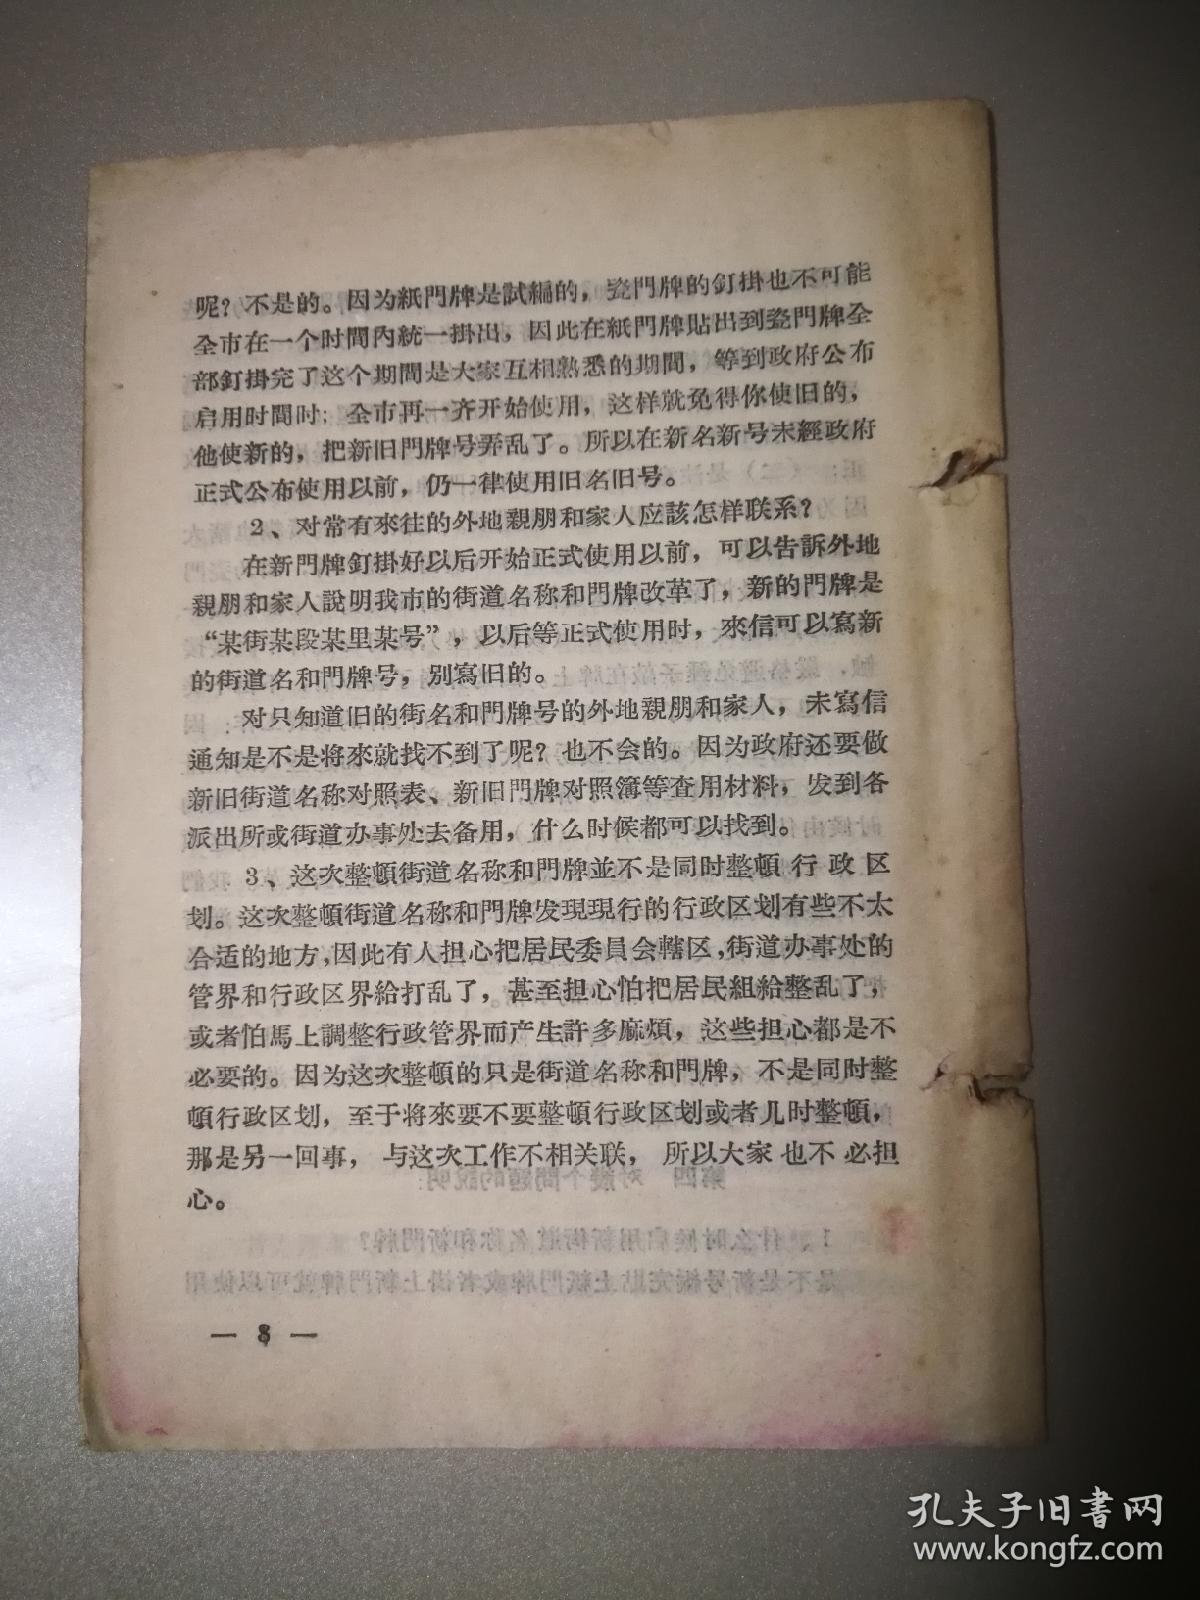 呢？不是的。因为紙門牌是試編的，瓷門牌的釘掛也不可能
全市在一个时間內統一掛出，因此在紙門牌貼出到瓷門牌全
部釘掛完了这个期間是大家互相熟悉的期間，等到政府公布
启用时間时；全市再一齐开始使用，这样就免得你使旧的，
他使新的，把新旧門牌号弄乱了。所以在新名新号未經政府
正式公布使用以前，仍一律使用旧名旧号。
2、对常有來往的外地親朋和家人应該怎样联系？
在新門牌釘掛好以后开始正式使用以前，可以告訴外地
親朋和家人說明我市的街道名称和門牌改革了，新的門牌是
“某街某段某里某号”，以后等正式使用时，來信可以寫新
的街道名和門牌号，别寫旧的。
对只知道旧的街名和門牌号的外地親朋和家人，未寫信
通知是不是将來就找不到了呢？也不会的。因为政府还要做
新旧街道名称对照表、新旧門牌对照簿等查用材料，发到各
派出所或街道办事处去备用，什么时候都可以找到。
3、这次整頓街道名称和門牌並不是同时整頓行政区
划。这次整頓街道名称和門牌发現現行的行政区划有些不太
合适的地方，因此有人担心把居民委員会轄区，街道办事处的
管界和行政区界給打乱了，甚至担心怕把居民組給整乱了，
或者怕馬上調整行政管界而产生許多麻煩，这些担心都是不
必要的。因为这次整頓的只是街道名称和門牌，不是同时整
頓行政区划，至于将來要不要整頓行政区划或者几时整頓，
那是另一回事，与这次工作不相关联，所以大家也不必担
心。
— 8 —
孔夫子旧書网
www.kongfz.com